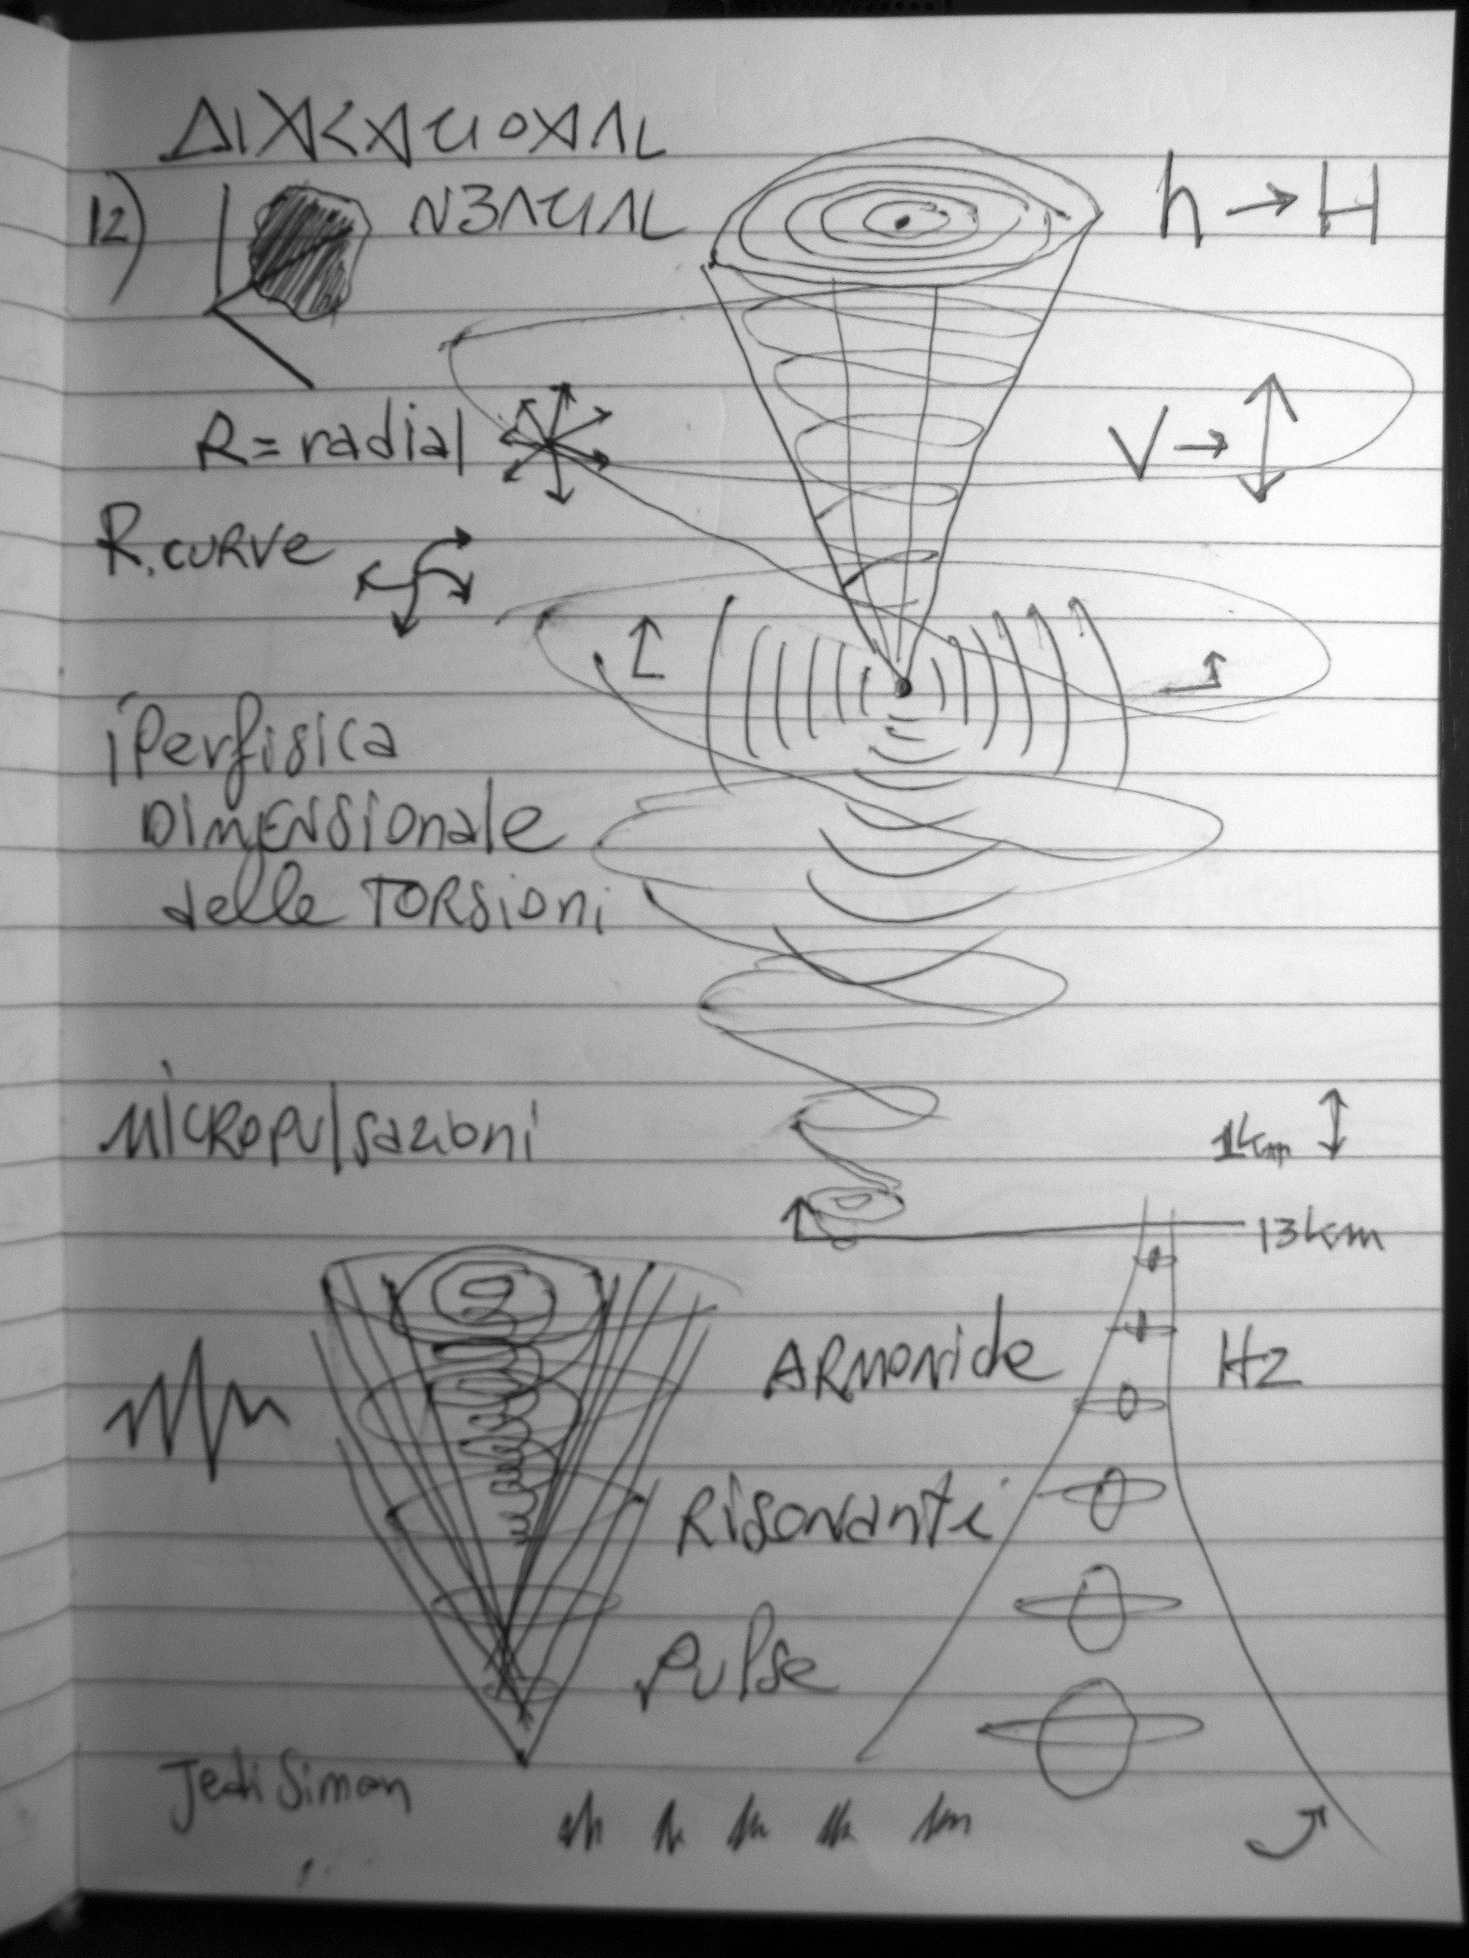 12)
h → H
R = radial
V →
R. CURVE
iPerfisica
DIMENSionale
delle TORSioni
MICROPulsazioni
1km
13km
ARMONICHE
Hz
RiSonanti
Pulse
Jedi Simon